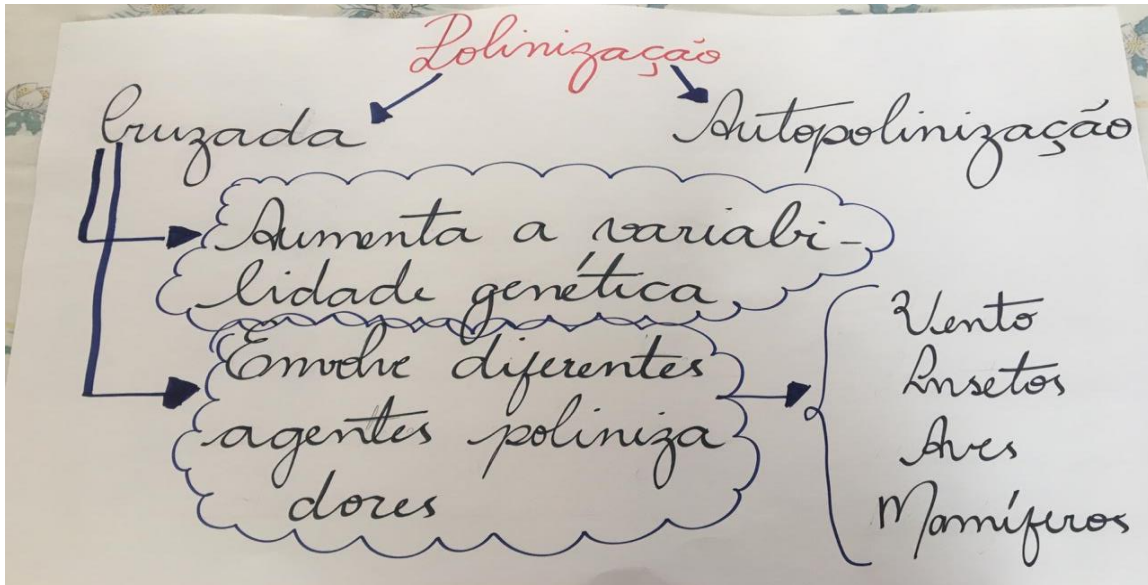 Polinização
Cruzada
Autopolinização
Aumenta a variabi-
lidade genética
Envolve diferentes
agentes poliniza
dores
Vento
Insetos
Aves
Mamíferos